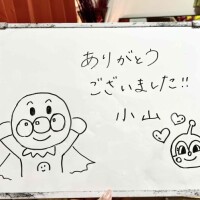 ありがとう
ございました!!
小山